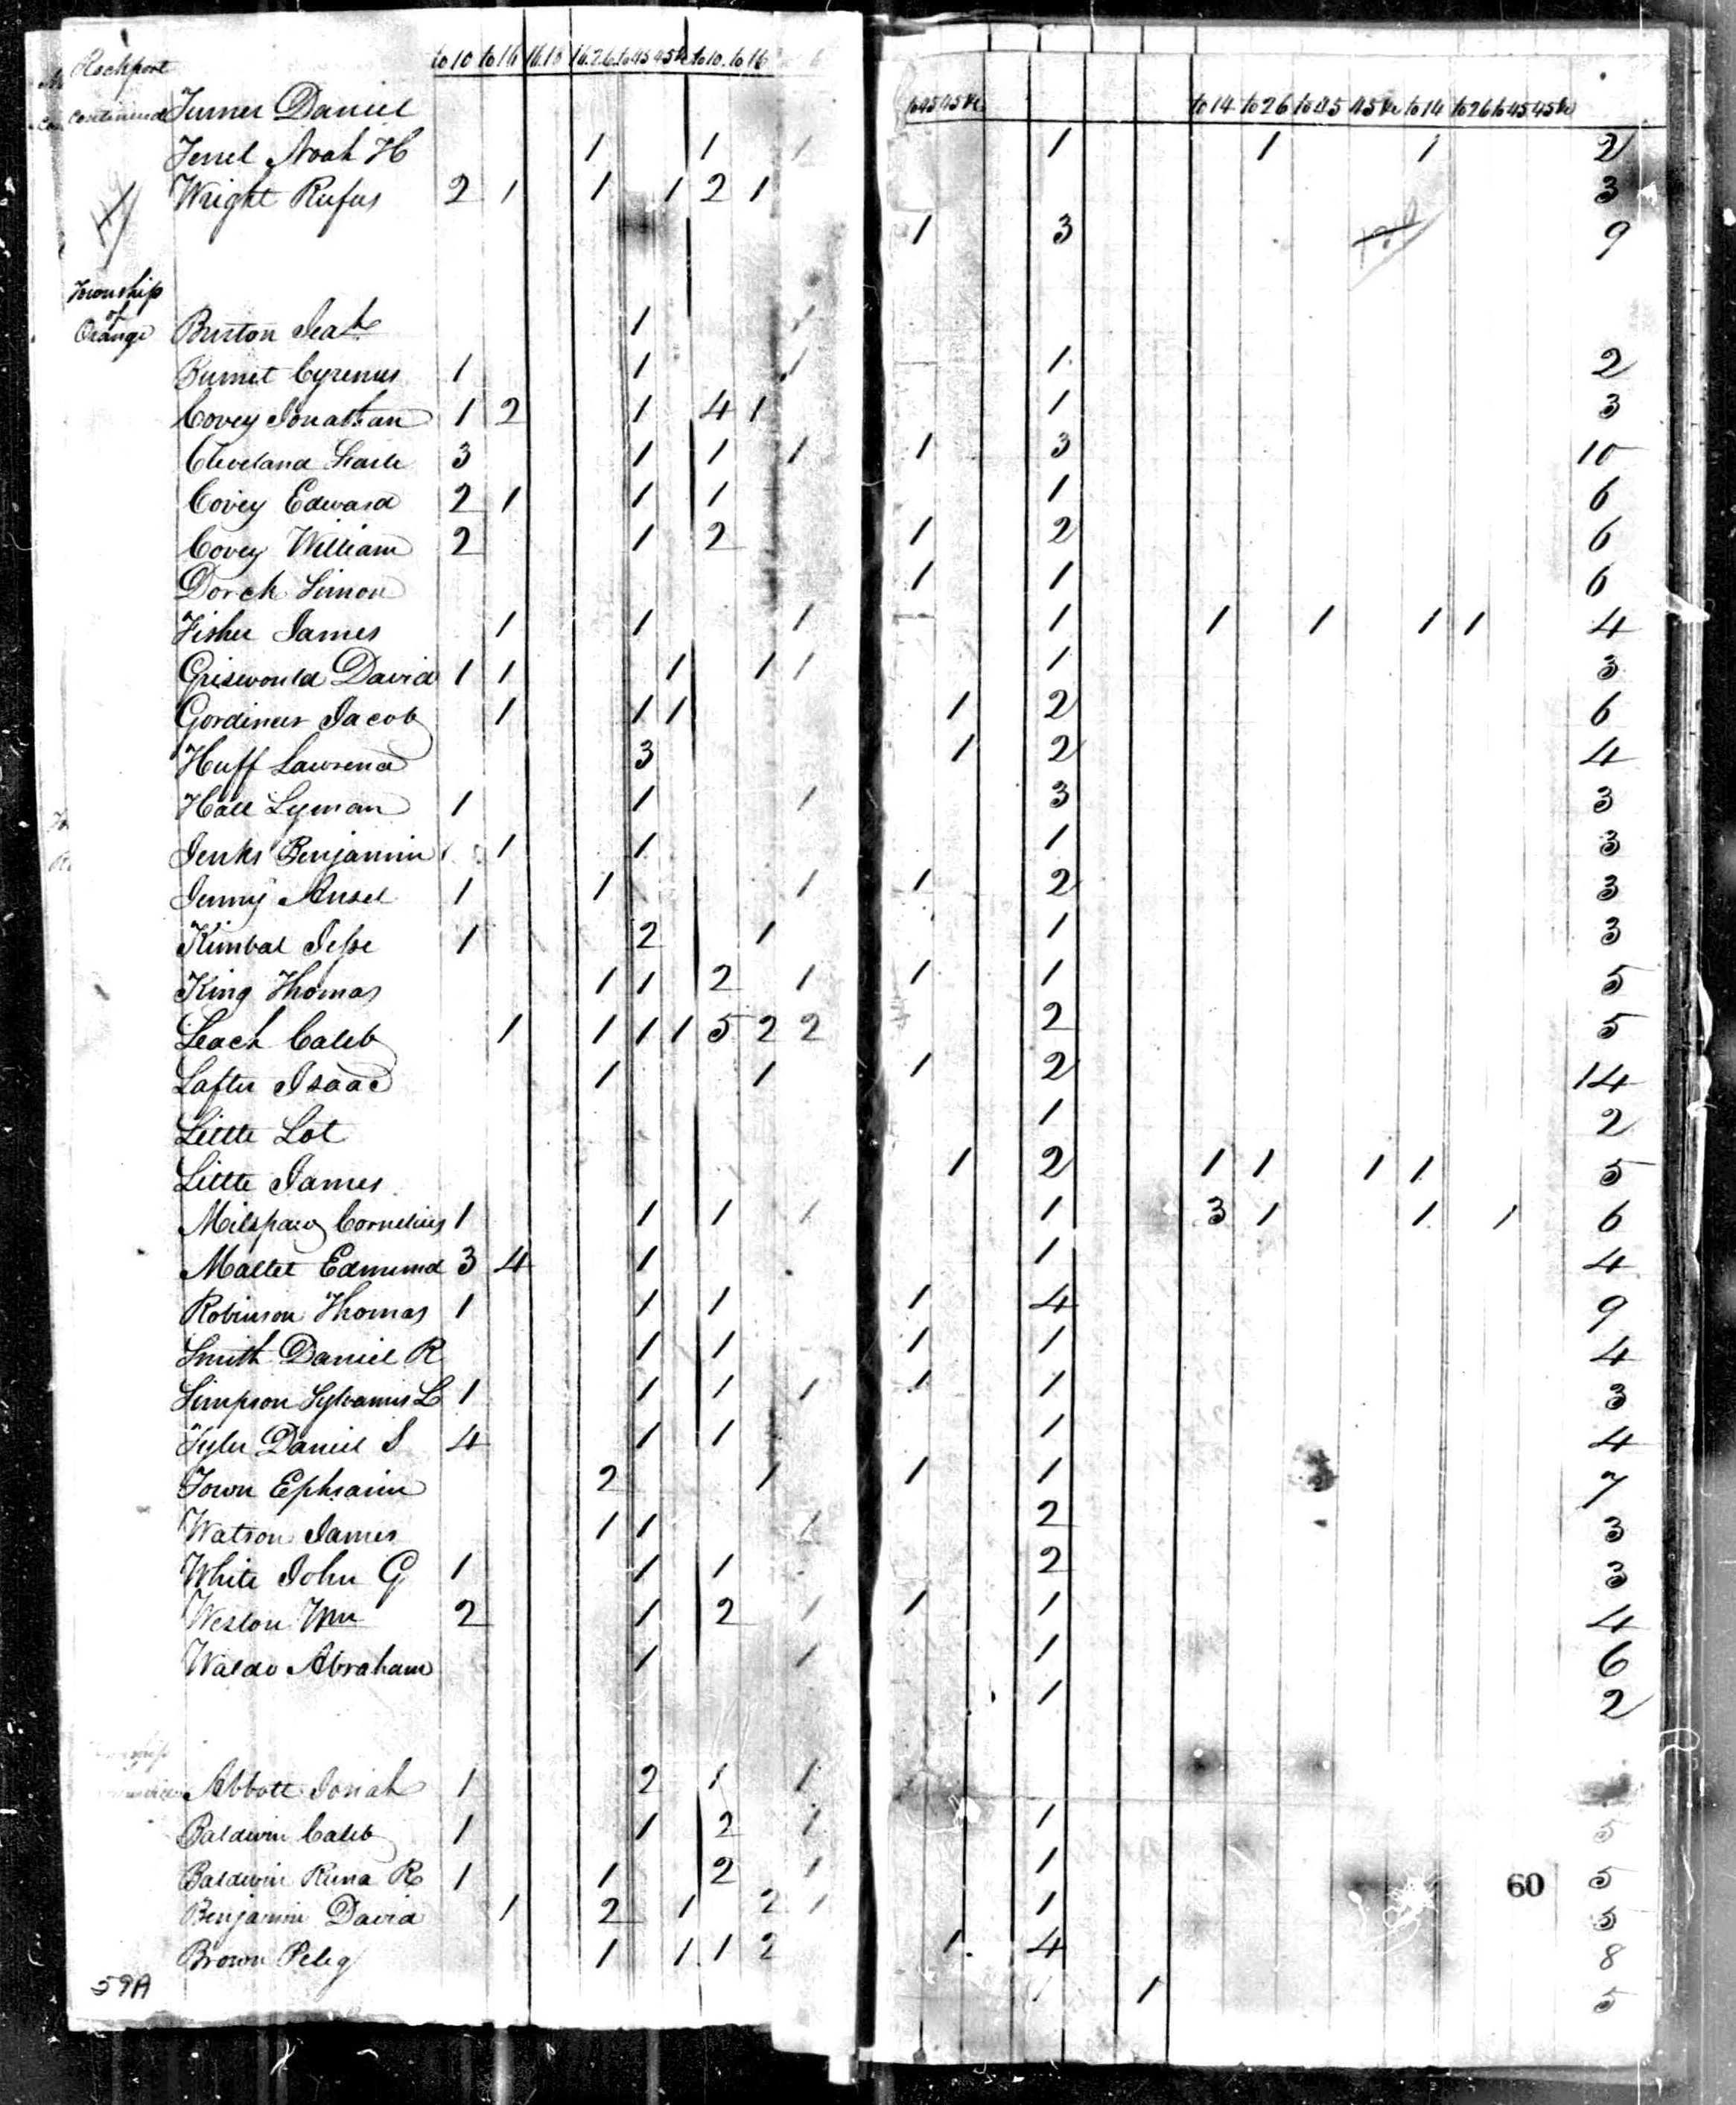 Rockport
to 10 to 16 16.18 16.26 to 45 45 &c to 10. to 16
continued Turner Daniel
Terrel Noah H 1 1 1
Wright Rufus 2 1 1 1 2 1
Township
of
Orange Burton Seah 1 1
Burnet Cyrenus 1 1 1
Covey Jonathan 1 2 1 4 1
Cleveland Searle 3 1 1 1
Covey Edward 2 1 1 1
Covey William 2 1 2
Dorch Simon
Fisher James 1 1 1
Griswould David 1 1 1 1 1
Gordinier Jacob 1 1 1
Huff Lawrence 3
Hall Lyman 1 1 1
Jenks Benjamin 1 1
Jenny Ansel 1 1 1
Kimbal Jesse 1 2 1
King Thomas 1 1 2 1
Leach Caleb 1 1 1 1 5 2 2
Lafler Isaac 1 1
Little Lot
Little James
Milspaw Cornelius 1 1 1 1
Mallet Edmund 3 4 1
Robinson Thomas 1 1 1
Smith Daniel R 1 1
Simpson Sylvanus L 1 1 1 1
Tyler Daniel S 4 1 1
Town Ephraim 2 1
Watson James 1 1 1
White John G 1 1 1
Weston Wm 2 1 2 1
Waldo Abraham 1 1
Abbott Josiah 1 2 1 1
Baldwin Caleb 1 1 2 1
Baldwin Runa R 1 1 2 1
Benjamin David 1 2 1 2 1
Brown Peleg 1 1 1 2
59A
to 45 45 &c to 14 to 26 to 45 45 &c to 14 to 26 to 45 45 &c
1 1 1 2
3
1 3 9
1 2
1 3
1 3 10
1 6
1 2 6
1 1 6
1 1 1 1 1 4
1 3
1 2 6
1 2 4
3 3
1 3
1 2 3
1 3
1 1 5
2 5
1 2 14
1 2
1 2 1 1 1 1 5
1 3 1 1 1 6
1 4
1 4 9
1 1 4
1 1 3
1 4
1 1 7
2 3
2 3
1 1 4
1 6
1 2
1 5
1 5
60
1 5
1 4 8
1 5